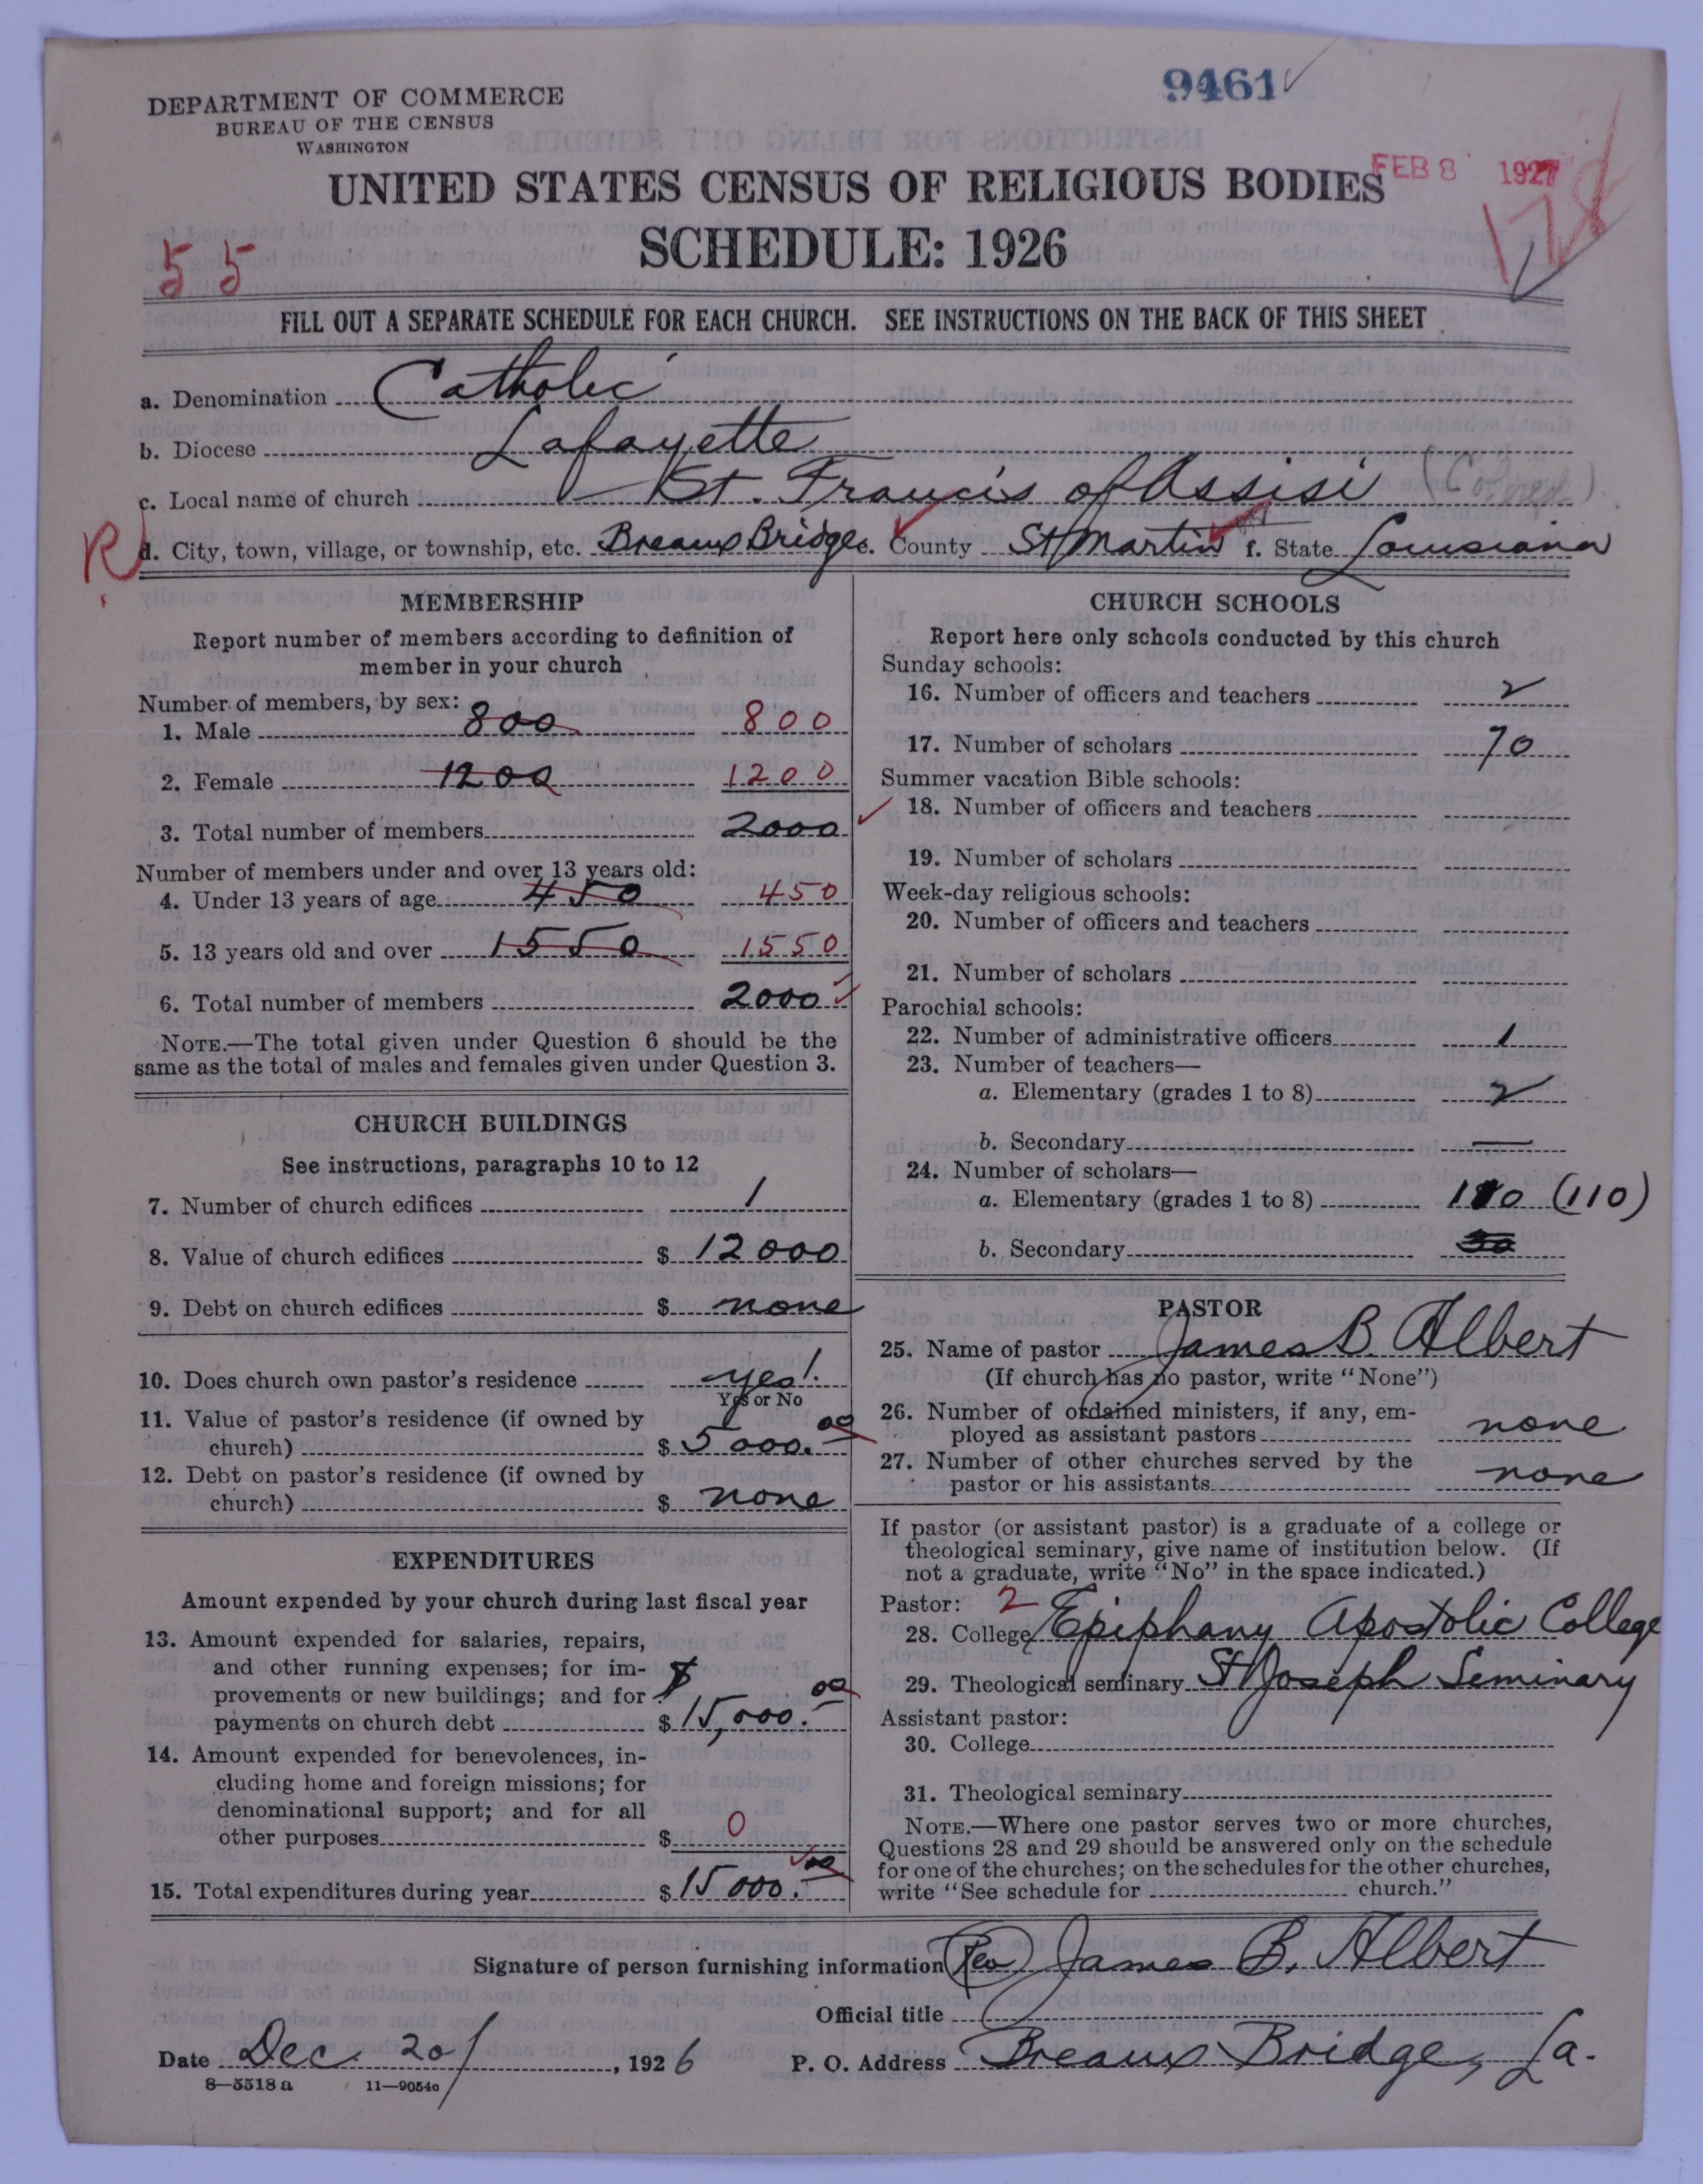 9461
DEPARTMENT OF COMMERCE
BUREAU OF THE CENSUS
WASHINGTON
FEB 8 1927
UNITED STATES CENSUS OF RELIGIOUS BODIES
SCHEDULE: 1926
55
FILL OUT A SEPARATE SCHEDULE FOR EACH CHURCH. SEE INSTRUCTIONS ON THE BACK OF THIS SHEET
a. Denomination Catholic
b. Diocese Lafayette
c. Local name of church St. Francis of Assisi (Colored).
R d. City, town, village, or township, etc. Breaux Bridge e. County St Martin f. State Louisiana
MEMBERSHIP
Report number of members according to definition of
member in your church
Number of members, by sex:
1. Male 800 800
2. Female 1200 1200
3. Total number of members 2000
Number of members under and over 13 years old:
4. Under 13 years of age 450 450
5. 13 years old and over 1550 1550
6. Total number of members 2000
NOTE.—The total given under Question 6 should be the
same as the total of males and females given under Question 3.
CHURCH BUILDINGS
See instructions, paragraphs 10 to 12
7. Number of church edifices 1
8. Value of church edifices $ 12000
9. Debt on church edifices $ none
10. Does church own pastor's residence yes!
Yes or No
11. Value of pastor's residence (if owned by
church) $ 5000.00
12. Debt on pastor's residence (if owned by
church) $ none
EXPENDITURES
Amount expended by your church during last fiscal year
13. Amount expended for salaries, repairs,
and other running expenses; for im-
provements or new buildings; and for $
payments on church debt $ 15,000.00
14. Amount expended for benevolences, in-
cluding home and foreign missions; for
denominational support; and for all
other purposes $ 0
15. Total expenditures during year $ 15000.00
CHURCH SCHOOLS
Report here only schools conducted by this church
Sunday schools:
16. Number of officers and teachers 2
17. Number of scholars 70
Summer vacation Bible schools:
18. Number of officers and teachers
19. Number of scholars
Week-day religious schools:
20. Number of officers and teachers
21. Number of scholars
Parochial schools:
22. Number of administrative officers 1
23. Number of teachers—
a. Elementary (grades 1 to 8) 2
b. Secondary —
24. Number of scholars—
a. Elementary (grades 1 to 8) 110 (110)
b. Secondary
PASTOR
25. Name of pastor James B Albert
(If church has no pastor, write "None")
26. Number of ordained ministers, if any, em-
ployed as assistant pastors none
27. Number of other churches served by the
pastor or his assistants none
If pastor (or assistant pastor) is a graduate of a college or
theological seminary, give name of institution below. (If
not a graduate, write "No" in the space indicated.)
Pastor: 2
28. College Epiphany Apostolic College
29. Theological seminary St Joseph Seminary
Assistant pastor:
30. College
31. Theological seminary
NOTE.—Where one pastor serves two or more churches,
Questions 28 and 29 should be answered only on the schedule
for one of the churches; on the schedules for the other churches,
write "See schedule for church."
Signature of person furnishing information (Rev) James B. Albert
Official title
Date Dec. 20/, 1926 P. O. Address Breaux Bridge, La.
8—5518a 11—9054o